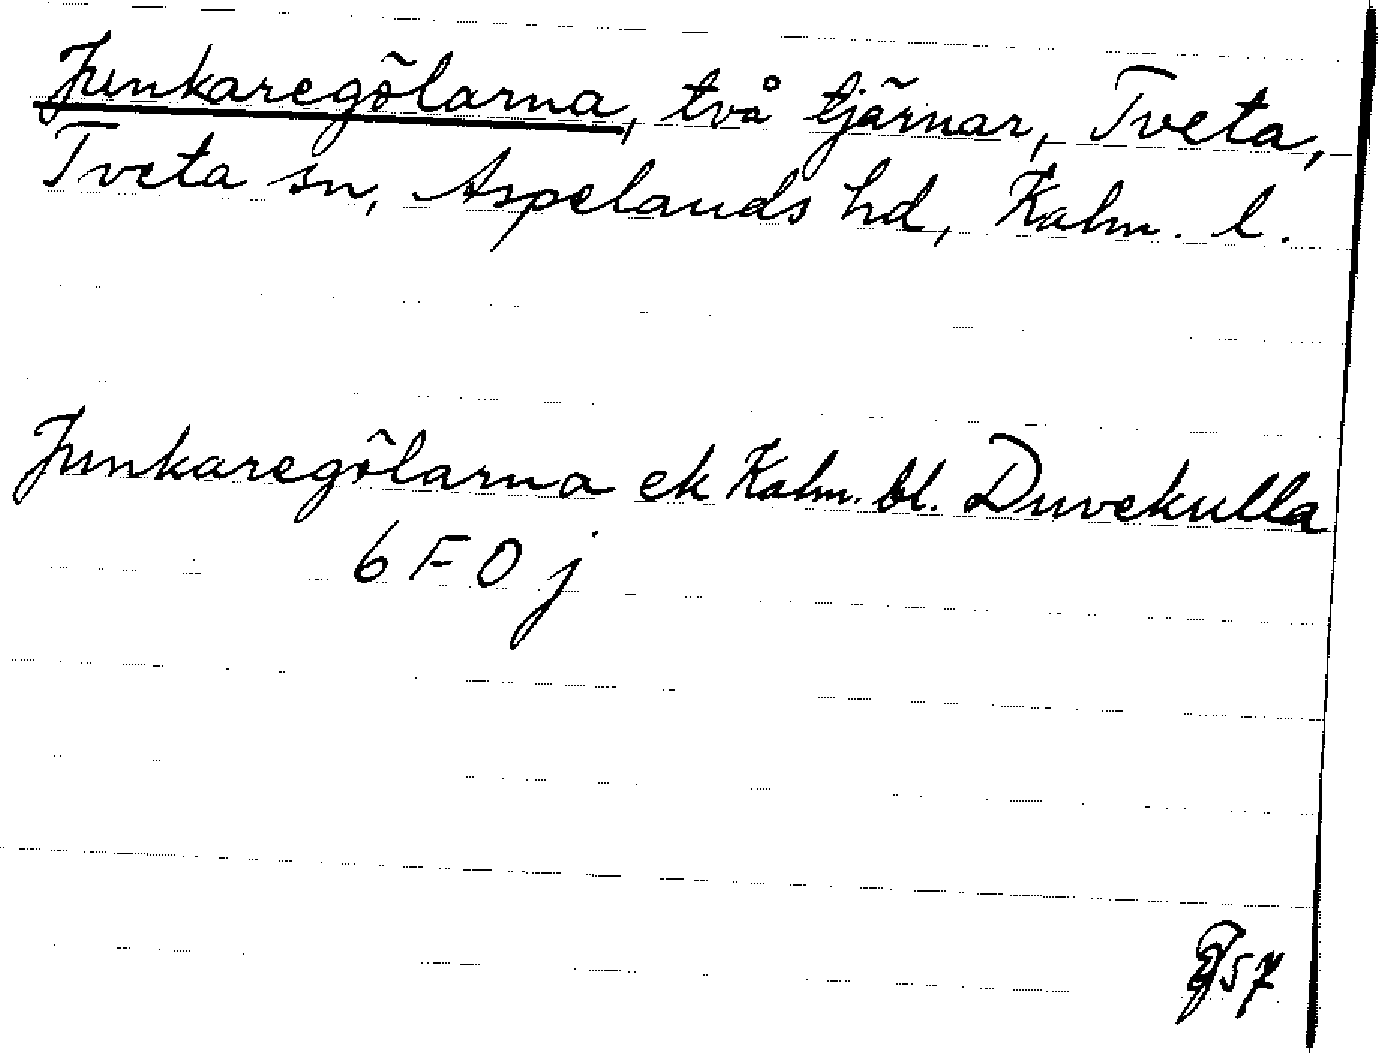 Junkaregölarna, två tjärnar, Tveta,
Tveta sn, Aspelands hd, Kalm. l.
Junkaregölarna ek Kalm. bl. Duvekulla
6 F 0 j
57